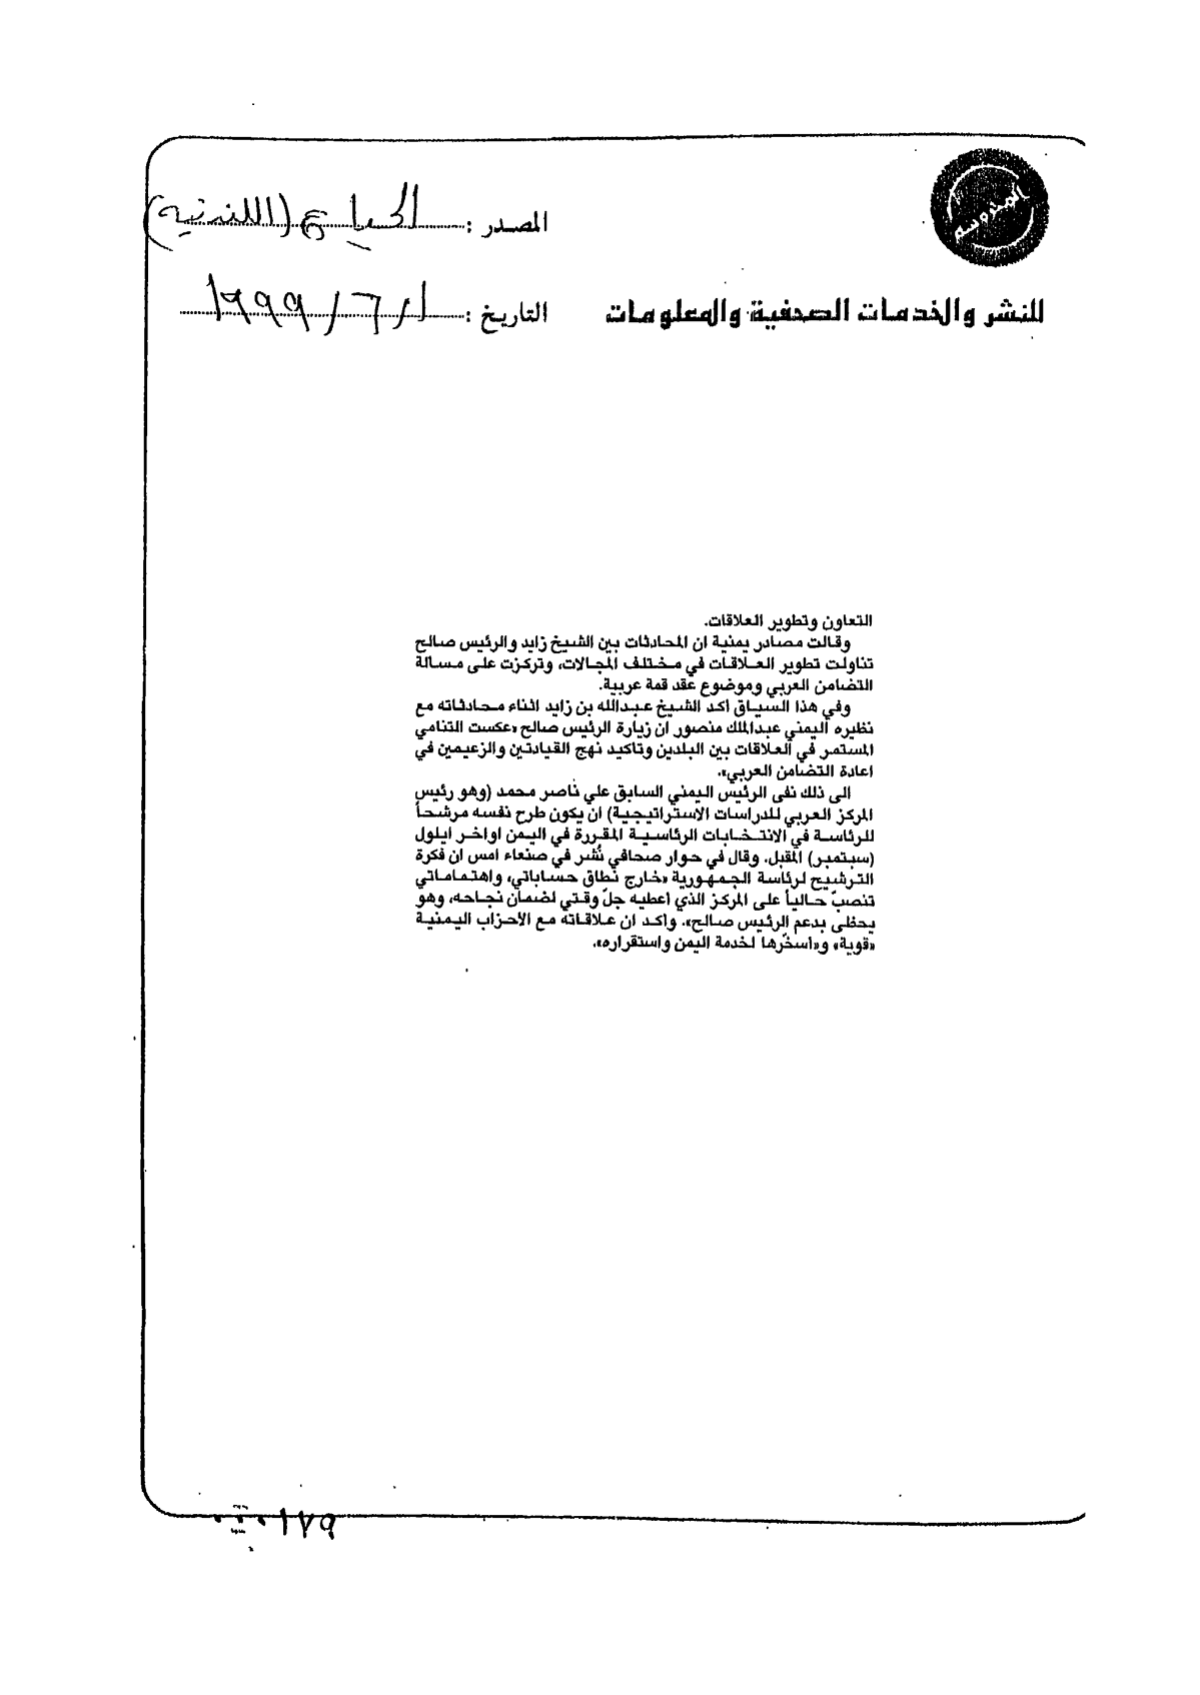 المصدر : الحياة (اللندنية)
للنشر والخدمات الصحفية والمعلومات
التاريخ : ١ / ٦ / ١٩٩٩
التعاون وتطوير العلاقات.
وقالت مصادر يمنية ان المحادثات بين الشيخ زايد والرئيس صالح
تناولت تطوير العلاقات في مختلف المجالات، وتركزت على مسالة
التضامن العربي وموضوع عقد قمة عربية.
وفي هذا السياق اكد الشيخ عبدالله بن زايد اثناء محادثاته مع
نظيره اليمني عبدالملك منصور ان زيارة الرئيس صالح «عكست التنامي
المستمر في العلاقات بين البلدين وتاكيد نهج القيادتين والزعيمين في
اعادة التضامن العربي».
الى ذلك نفى الرئيس اليمني السابق علي ناصر محمد (وهو رئيس
المركز العربي للدراسات الاستراتيجية) ان يكون طرح نفسه مرشحاً
للرئاسة في الانتخابات الرئاسية المقررة في اليمن اواخر ايلول
(سبتمبر) المقبل. وقال في حوار صحافي نُشر في صنعاء امس ان فكرة
الترشيح لرئاسة الجمهورية «خارج نطاق حساباتي، واهتماماتي
تنصبّ حالياً على المركز الذي اعطيه جلّ وقتي لضمان نجاحه، وهو
يحظى بدعم الرئيس صالح». واكد ان علاقاته مع الاحزاب اليمنية
«قوية» و«اسخّرها لخدمة اليمن واستقراره».
١٧٩